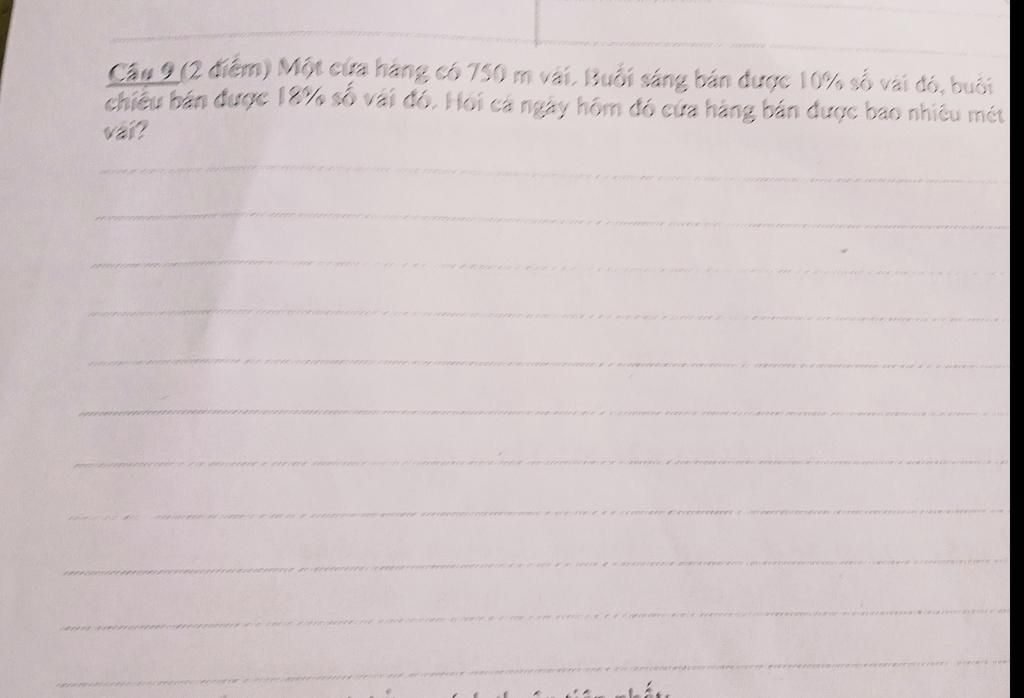 Câu 9 (2 điểm) Một cửa hàng có 750 m vải. Buổi sáng bán được 10% số vải đó, buổi
chiều bán được 18% số vải đó. Hỏi cả ngày hôm đó cửa hàng bán được bao nhiêu mét
vải?